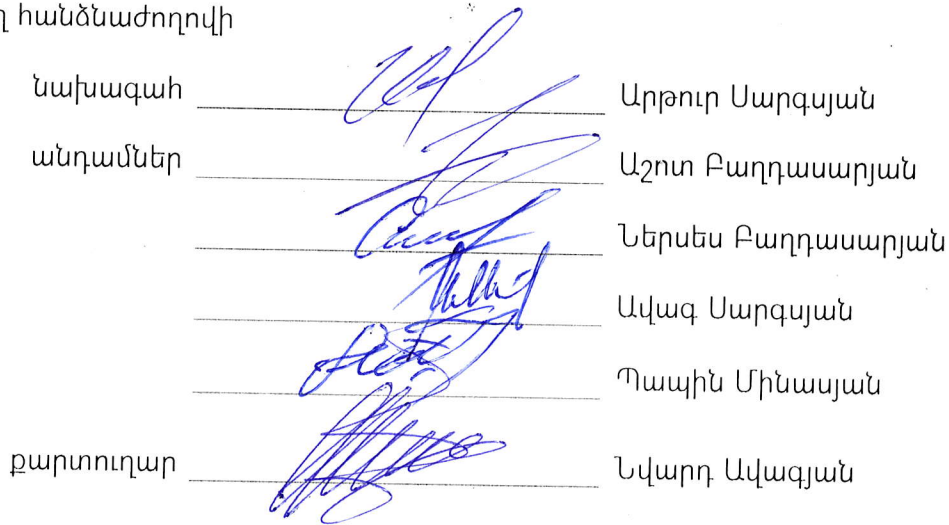 հանձնաժողովի
նախագահ Արթուր Սարգսյան
անդամներ Աշոտ Բաղդասարյան
Ներսես Բաղդասարյան
Ավագ Սարգսյան
Պապին Մինասյան
քարտուղար Նվարդ Ավագյան